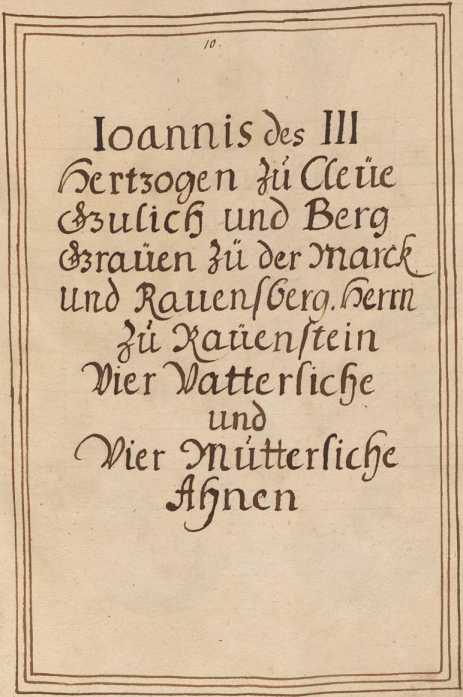 10.
Ioannis des III
Hertzogen zú Cleüe
Gulich und Berg
Graüen zü der Marck
und Rauensberg. Herrn
zú Raüenstein
Vier Vatterliche
und
Vier Mütterliche
Ahnen